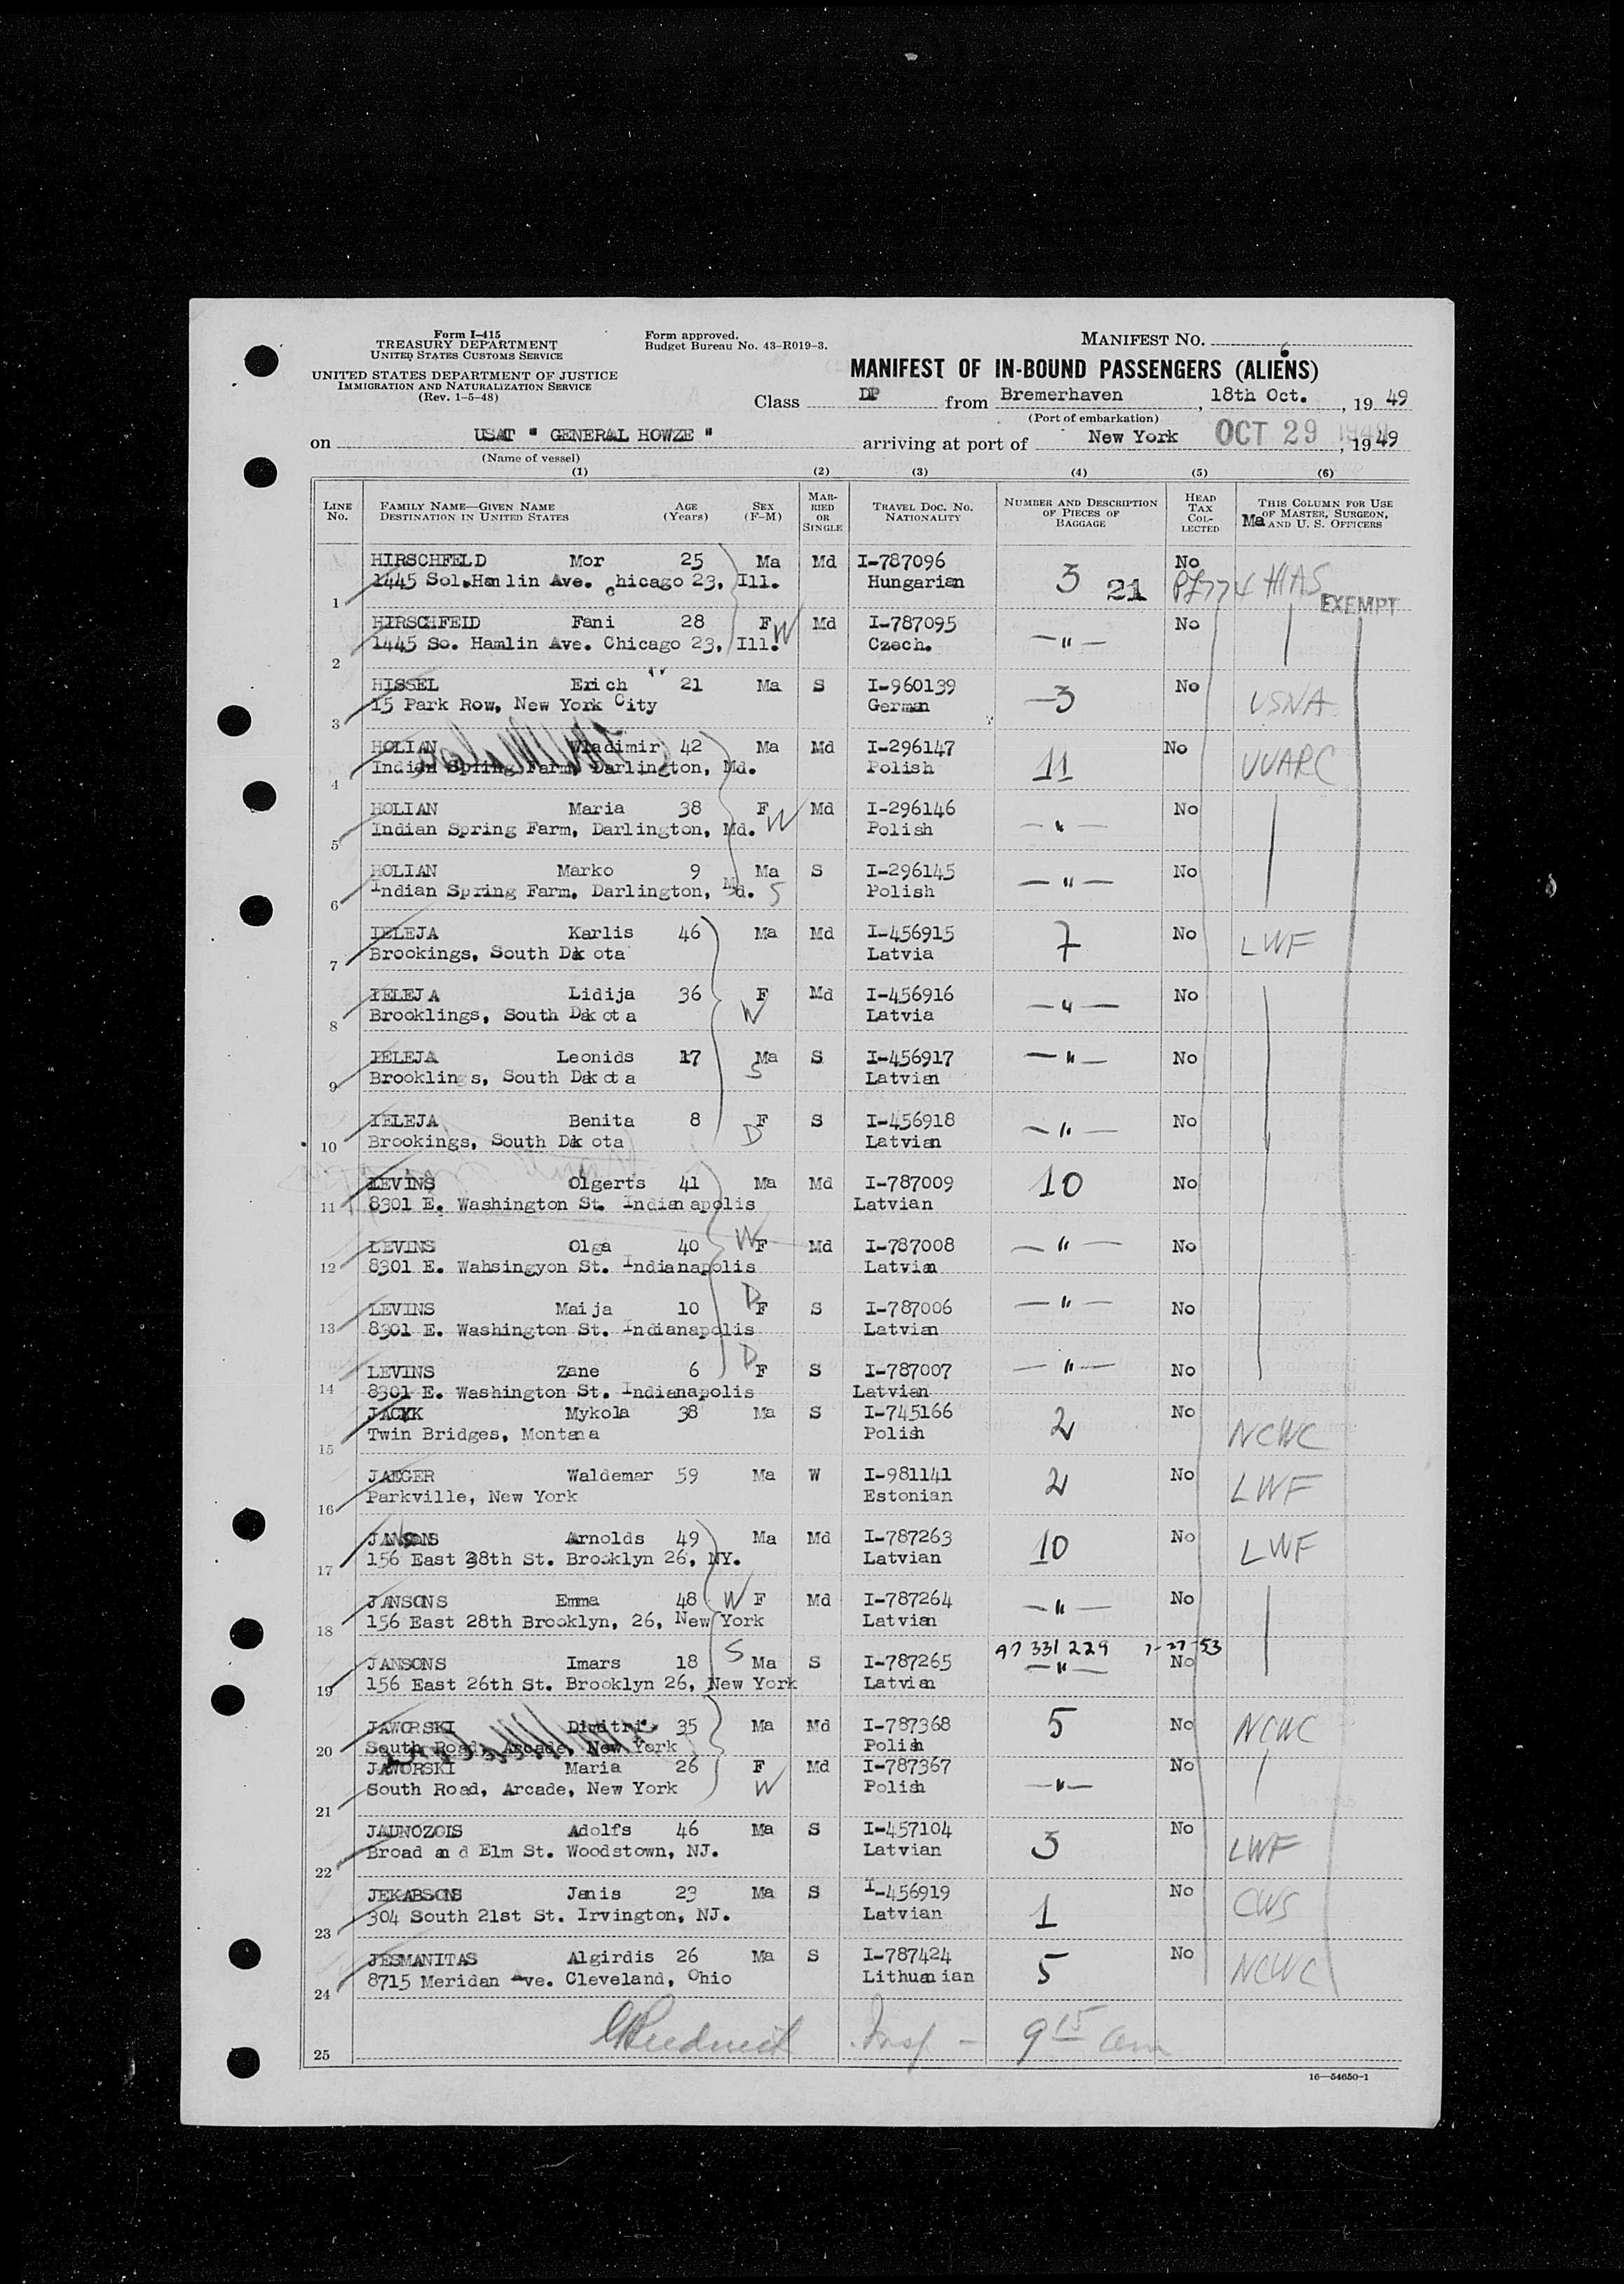 Form I-415
TREASURY DEPARTMENT
UNITED STATES CUSTOMS SERVICE
UNITED STATES DEPARTMENT OF JUSTICE
IMMIGRATION AND NATURALIZATION SERVICE
(Rev. 1-5-48)
Form approved.
Budget Bureau No. 43-R019-3.
MANIFEST NO.
6
MANIFEST OF IN-BOUND PASSENGERS (ALIENS)
Class DP from Bremerhaven, 18th Oct., 19 49
(Port of embarkation)
on USAT " GENERAL HOWZE " arriving at port of New York OCT 29 1949, 19 49
(Name of vessel)
(1) (2) (3) (4) (5) (6)
LINE No. FAMILY NAME—GIVEN NAME DESTINATION IN UNITED STATES AGE (Years) SEX (F-M) MARRIED OR SINGLE TRAVEL DOC. NO. NATIONALITY NUMBER AND DESCRIPTION OF PIECES OF BAGGAGE HEAD TAX COLLECTED THIS COLUMN FOR USE OF MASTER, SURGEON, AND U. S. OFFICERS
Ma
HIRSCHFELD Mor 25 Ma Md I-787096 No
1 1445 Sol.Hamlin Ave. chicago 23, Ill. Hungarian 3 21 PL774 HIAS EXEMPT
HIRSCHFELD Fani 28 F W Md I-787095 No
2 1445 So. Hamlin Ave. Chicago 23, Ill. Czech. — " —
HISSEL Erich 21 Ma S I-960139 No
3 15 Park Row, New York City German 3 USNA
HOLIAN Wladimir 42 Ma Md I-296147 No
4 Indian Spring Farm, Darlington, Md. Polish 11 UUARC
HOLIAN Maria 38 F W Md I-296146 No
5 Indian Spring Farm, Darlington, Md. Polish — " —
HOLIAN Marko 9 Ma S I-296145 No
6 Indian Spring Farm, Darlington, Md. S Polish — " —
IELEJA Karlis 46 Ma Md I-456915 No
7 Brookings, South Dakota Latvia 7 LWF
IELEJA Lidija 36 F Md I-456916 No
8 Brooklings, South Dakota W Latvia — " —
IELEJA Leonids 17 Ma S I-456917 No
9 Brooklings, South Dakota S Latvian — " —
IELEJA Benita 8 F S I-456918 No
10 Brookings, South Dakota D Latvian — " —
LEVINS Olgerts 41 Ma Md I-787009 No
11 8301 E. Washington St. Indianapolis Latvian 10
LEVINS Olga 40 W F Md I-787008 No
12 8301 E. Wahsingyon St. Indianapolis Latvian — " —
LEVINS Maija 10 D F S I-787006 No
13 8301 E. Washington St. Indianapolis Latvian — " —
LEVINS Zane 6 D F S I-787007 No
14 8301 E. Washington St. Indianapolis Latvian — " —
JACYK Mykola 38 Ma S I-745166 No
15 Twin Bridges, Montana Polish 2 NCWC
JAEGER Waldemar 59 Ma W I-981141 No
16 Parkville, New York Estonian 2 LWF
JANSONS Arnolds 49 Ma Md I-787263 No
17 156 East 28th St. Brooklyn 26, NY. Latvian 10 LWF
JANSONS Emma 48 W F Md I-787264 No
18 156 East 28th Brooklyn, 26, New York Latvian — " —
A7 331 229 7-27-53
JANSONS Imars 18 S Ma S I-787265 No
19 156 East 26th St. Brooklyn 26, New York Latvian — " —
JAWORSKI Dimitri 35 Ma Md I-787368 No
20 South Road, Arcade, New York Polish 5 NCWC
JAWORSKI Maria 26 F Md I-787367 No
21 South Road, Arcade, New York W Polish — " —
JAUNOZOLS Adolfs 46 Ma S I-457104 No
22 Broad and Elm St. Woodstown, NJ. Latvian 3 LWF
JEKABSONS Janis 23 Ma S I-456919 No
23 304 South 21st St. Irvington, NJ. Latvian 1 CWS
JESMANITAS Algirdis 26 Ma S I-787424 No
24 8715 Meridan Ave. Cleveland, Ohio Lithuanian 5 NCWC
25 Insp — 9 15 am
16—54650-1